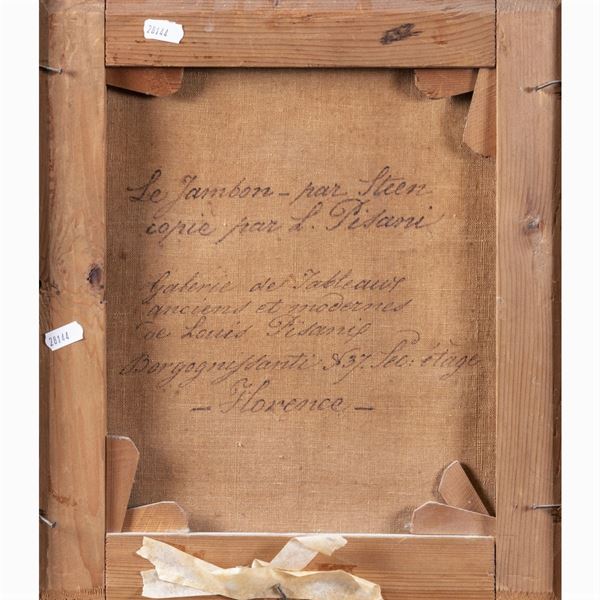 28144
Le Jambon - par Steen
copie par L. Pisani
Galerie de Tableaux
anciens et modernes
de Louis Pisani
28144
Borgognissanti N 37. Sec: étage
- Florence -